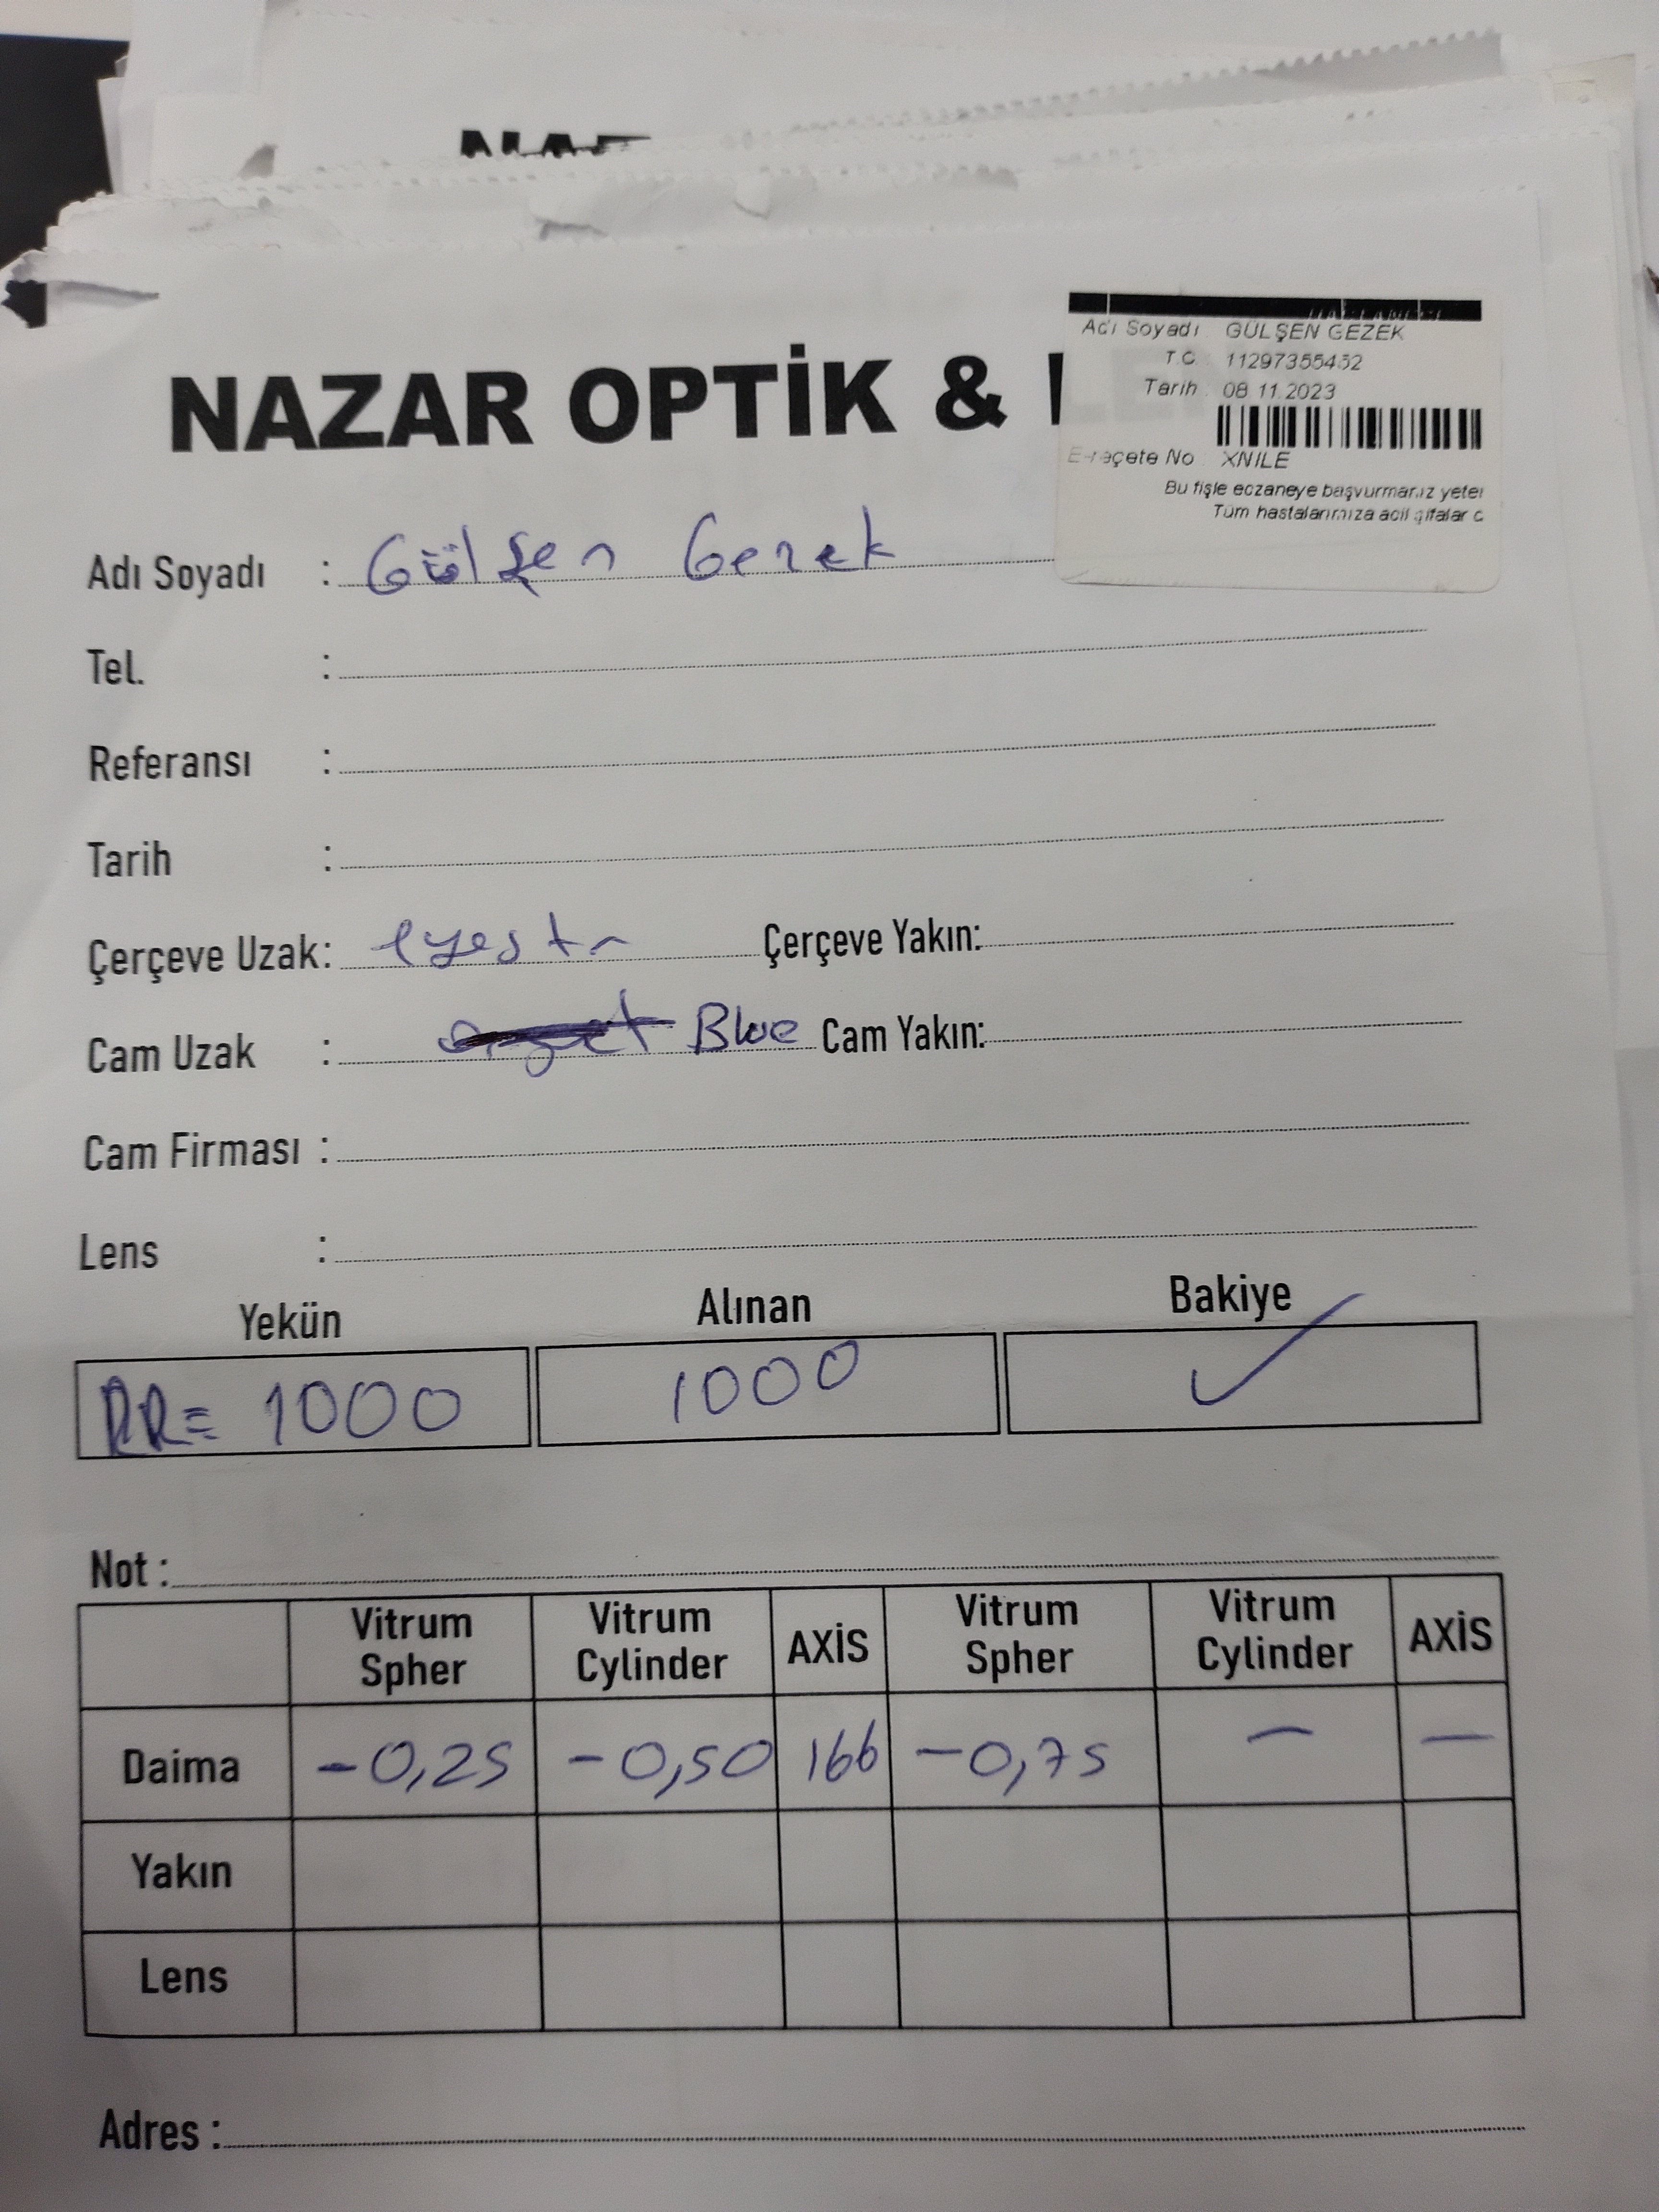 NAZAR OPTİK &
Adı Soyadı : GÜLŞEN GEZEK
T.C. : 11297355452
Tarih : 08.11.2023
E-reçete No : XNILE
Bu fişle eczaneye başvurmanız yeter
Tüm hastalarımıza acil şifalar
Adı Soyadı : Gülşen Gezek
Tel. :
Referansı :
Tarih :
Çerçeve Uzak: Çerçeve Yakın:
Cam Uzak : Blue Cam Yakın:
Cam Firması :
Lens :
Yekün Alınan Bakiye
RR= 1000 1000 ✓
Not :
Vitrum Spher Vitrum Cylinder AXİS Vitrum Spher Vitrum Cylinder AXİS
Daima -0,25 -0,50 166 -0,75 — —
Yakın
Lens
Adres :